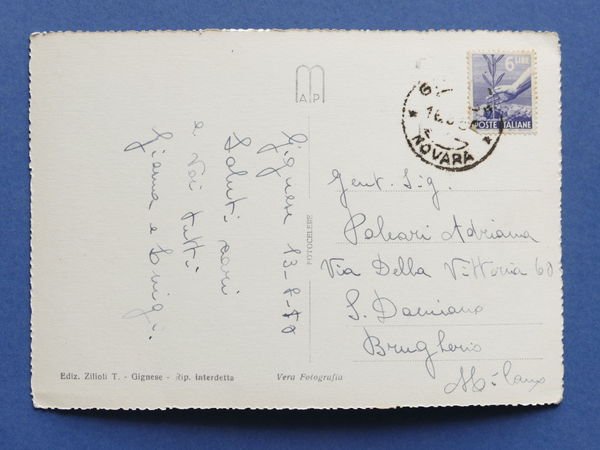 Gignese 13-8-50
Saluti cari
a voi tutti
Gianna e Luigi.
MAP
FOTOCELERE
6 LIRE
POSTE ITALIANE
NOVARA
Gent. Sig.
Paleari Adriana
Via Della Vittoria 60
S. Damiano
Brugherio
Milano
Ediz. Zilioli T. - Gignese - Rip. Interdetta
Vera Fotografia